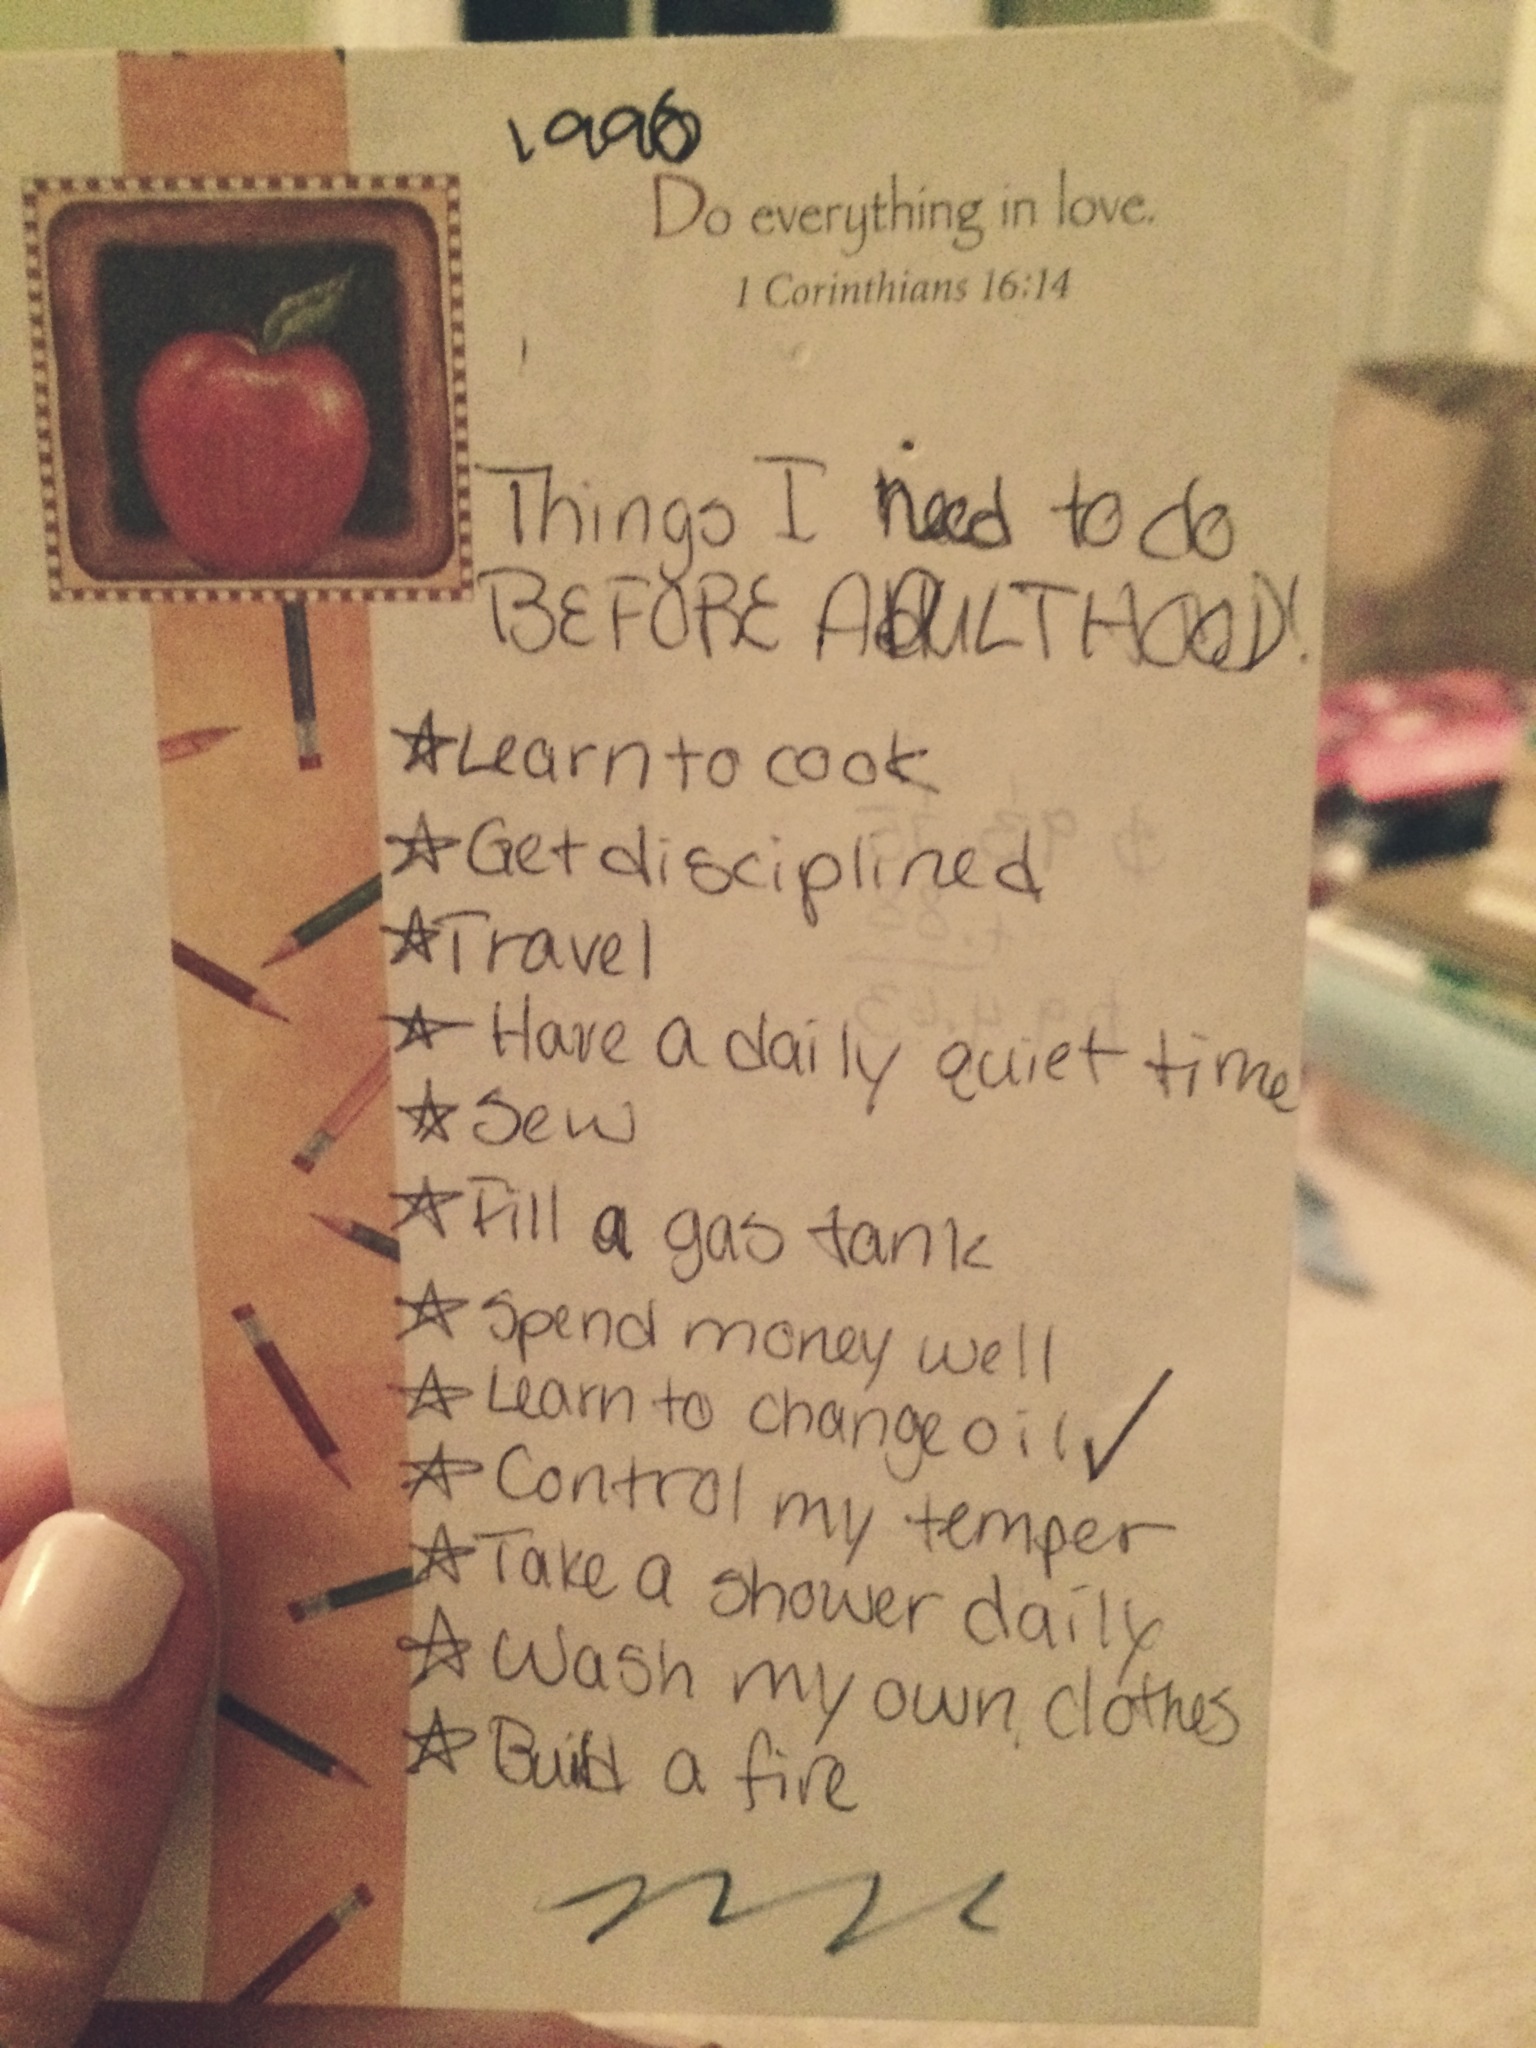 1996
Do everything in love.
1 Corinthians 16:14
Things I need to do
BEFORE ADULTHOOD!
☆Learn to cook
☆Get disciplined
☆Travel
☆Have a daily quiet time
☆Sew
☆Fill a gas tank
☆Spend money well
☆Learn to change oil ✓
☆Control my temper
☆Take a shower daily
☆Wash my own clothes
☆Build a fire